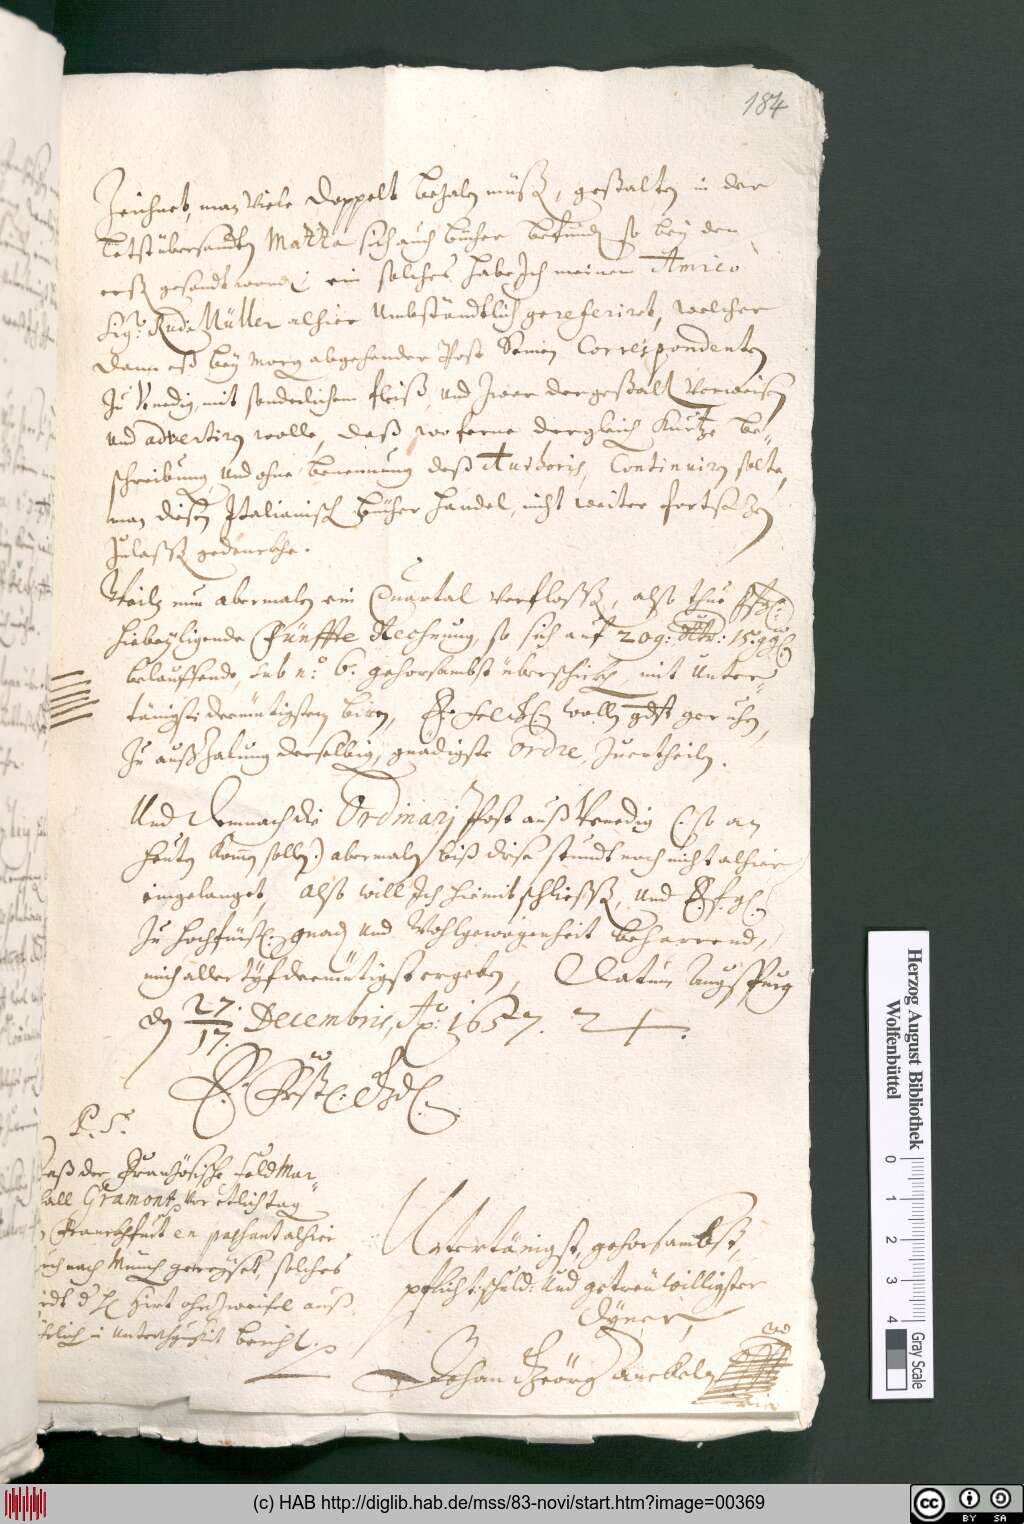 184
Zeichnet, man Viele Doppelt behalen müß, gestalten in der
letst übersandten Matta sich auch bücher befinden so bey den
erst gesandt worden, ein solches habe Ich meinem Amico
Sig: Rudi Müller alhier Umbständtlich gereferiret, welcher
Dann eß bey morgen abgehender Post Seinen Correspondenten
Zu Venedig, mit sonderlichem fleiß, Und Zwar dergestalt Verweisen
und advertiren wolle, daß woferne dergleich Kurtze be-
schreibung, Und ohne benennung deß Authoris, Continuiren solte,
man diesen Italianisch bücher handel, nicht weiter fortsetzen
Zulassen gedenckhe.
Weiln nun abermalen ein Quartal Verflossen, also thue
hiebeyligende Fünffte Rechnung, so sich auf 209: Rthr: 15: ggl
belauffende, sub n.o 6. gehorsambst überschickhen, mit Unter-
tänigst: demütigsten biten, wollen gdst geruhen,
Zu außzalung derselbigen, gnädigste Ordre, Zuertheilen.
Und Demnach die Ordinarj Post auß Venedig (: so an
heuten komen sollen:) abermalen biß dise stundt noch nicht alhier
eingelanget, Also will Ich hiemit schliessen, Und E. f. g.
Zu hochfürstl. gnad Und Wohlgewogenheit beharrend,
mich aller tyf demütigst ergeben, Datum Augspurg
den 27./17. Decembris, Ao: 1657.
E. Frstl. Gdl.
P. S.
Daß der Französische feldMar-
schall Gramont, vor etlich tag
Franckhfurt en passant alhier
nach Münch gereyset, solches
Hirt ohne Zweifel auß
in Unterthenigkeit bericht.
Untertänigst, gehorsambst,
pflicht: schuld: Und getreu willigster
Dyner,
Johan Georg Anckel
Herzog August Bibliothek
Wolfenbüttel
0 1 2 3 4 Gray Scale
(c) HAB http://diglib.hab.de/mss/83-novi/start.htm?image=00369
cc BY SA